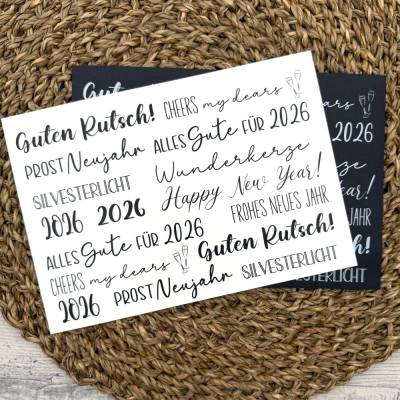 Guten Rutsch! CHEERS my dears
PROST Neujahr ALLES Gute FÜR 2026
SILVESTERLICHT Wunderkerze
2026 2026 Happy New Year!
ALLES Gute FÜR 2026 FROHES NEUES JAHR
CHEERS my dears Guten Rutsch!
2026 PROST Neujahr SILVESTERLICHT
my dears
FÜR 2026
JAHR
SILVESTERLICHT